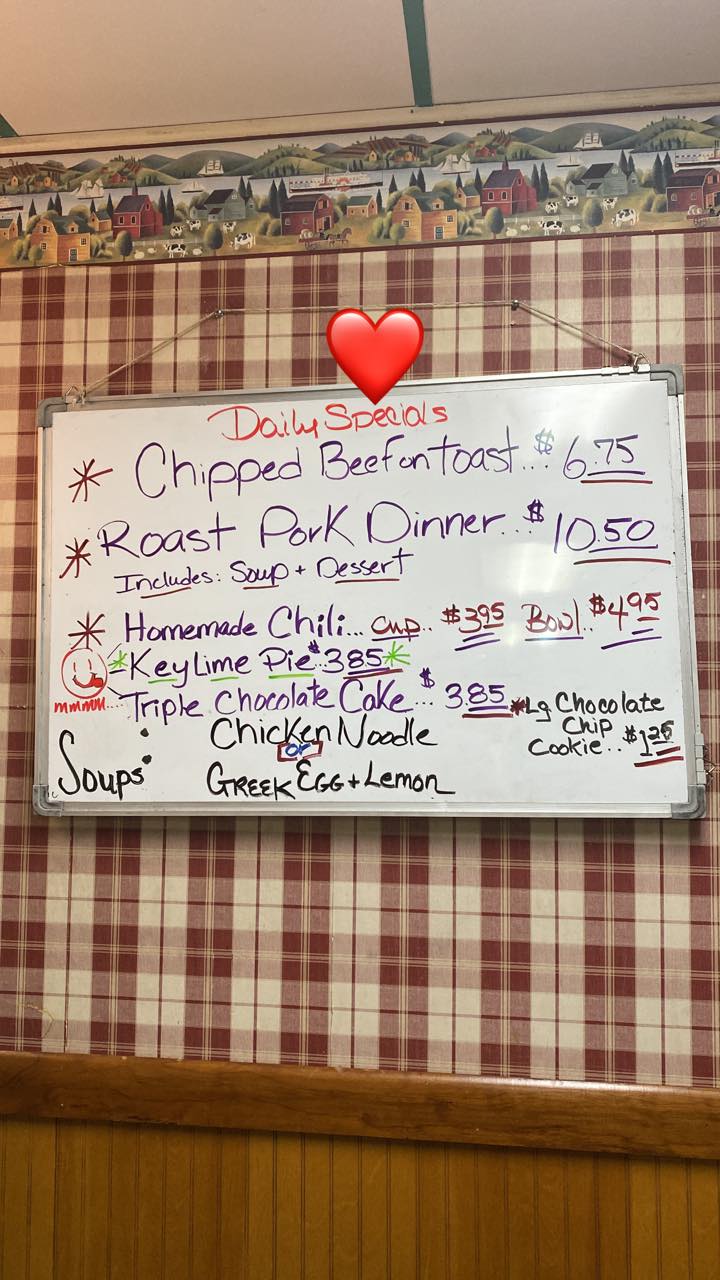 Daily Specials
* Chipped Beef on Toast... $6.75
* Roast Pork Dinner... $10.50
Includes: Soup + Dessert
* Homemade Chili... Cup.. $3.95 Bowl.. $4.95
* Key Lime Pie $3.85 *
mmmm.... Triple Chocolate Cake... $3.85
* Lg Chocolate
Chip
Cookie.. $1.25
Soups: Chicken Noodle
or
Greek Egg + Lemon